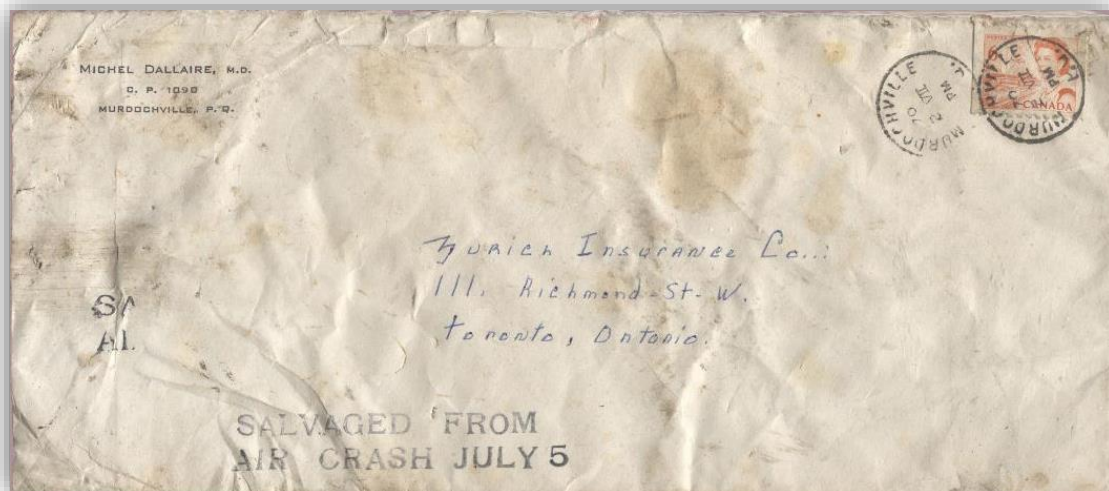 MICHEL DALLAIRE, M.D.
C. P. 1090
MURDOCHVILLE, P.Q.
MURDOCHVILLE
PM
2
VII
70
MURDOCHVILLE
PM
VII
6
CANADA
Zurich Insurance Co.:
111. Richmond-St-W.
Toronto, Ontario.
SA
AI
SALVAGED FROM
AIR CRASH JULY 5